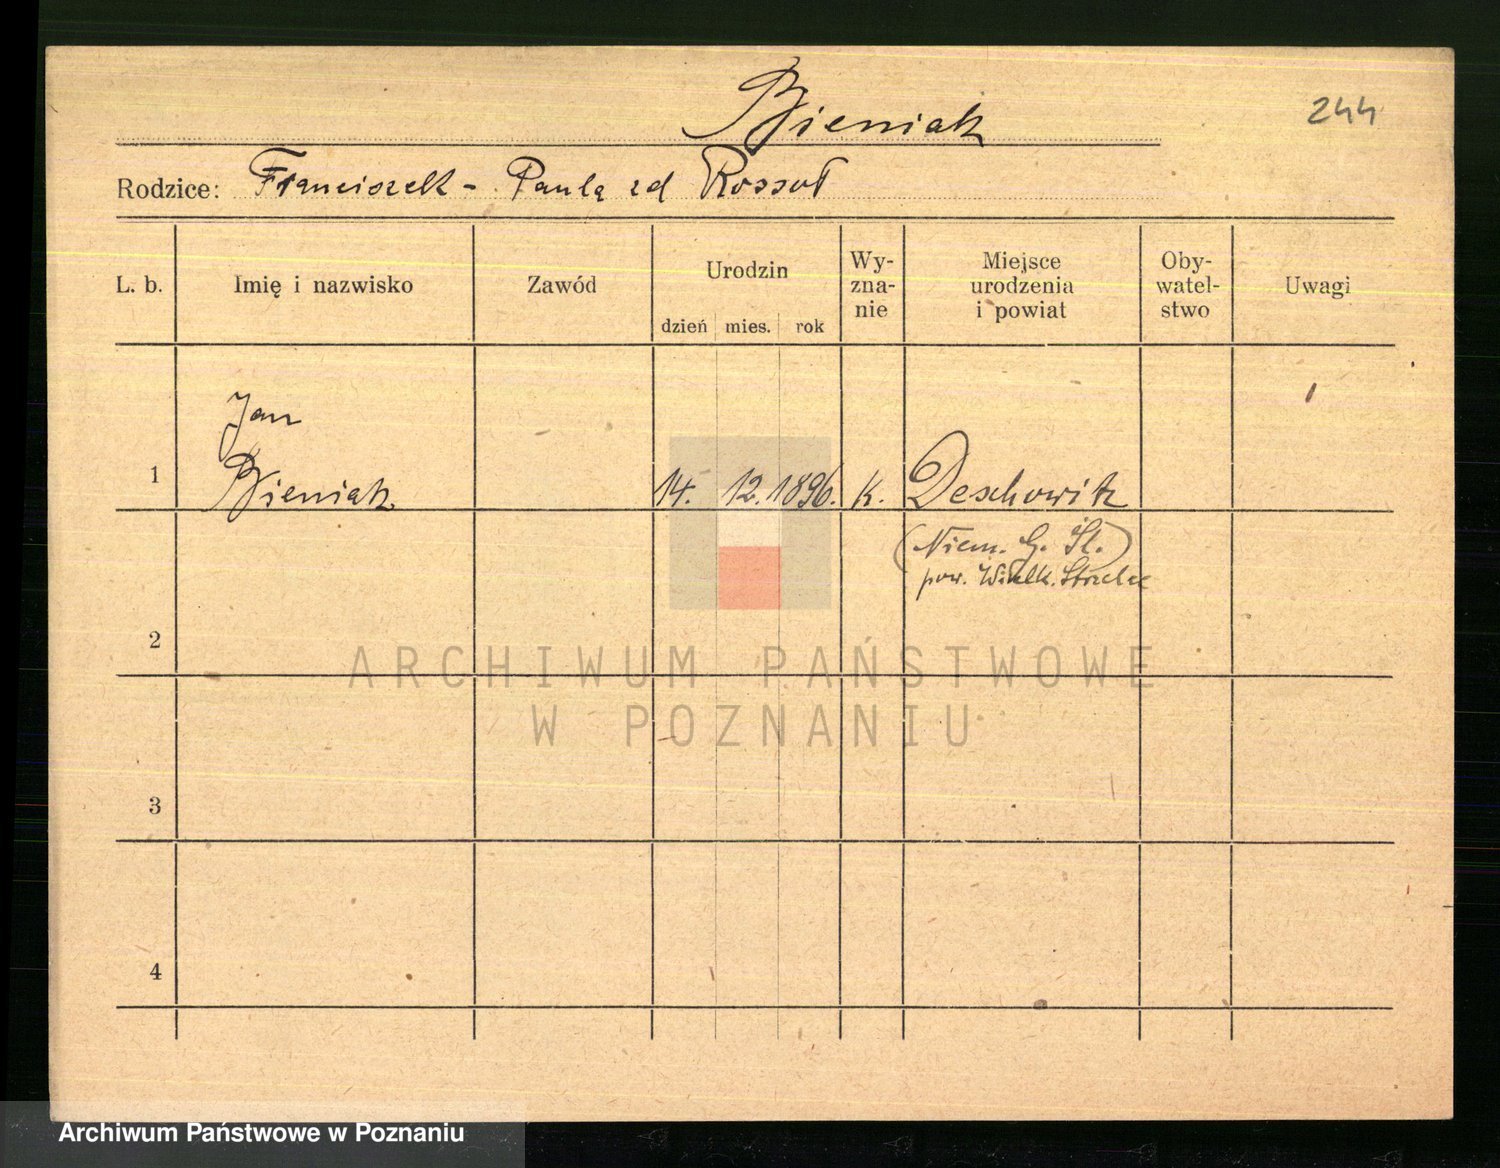 Bieniak
244
Rodzice: Franciszek - Paulą zd Rossoł
L. b.
Imię i nazwisko
Zawód
Urodzin
dzień mies. rok
Wy-
zna-
nie
Miejsce
urodzenia
i powiat
Oby-
watel-
stwo
Uwagi
Jan
1 Bieniak 14. 12. 1896. k. Deschowitz
(Niem. G. Śl.)
pow. Wielk. Strzelce
2
ARCHIWUM PAŃSTWOWE
W POZNANIU
3
4
Archiwum Państwowe w Poznaniu